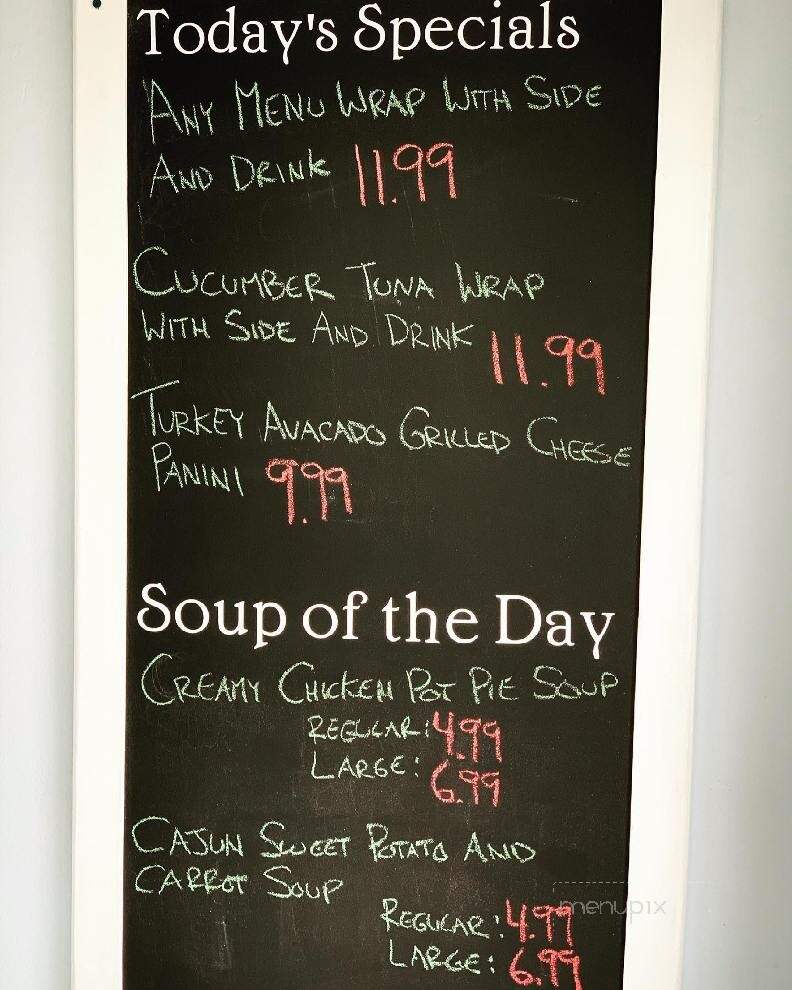 Today's Specials
ANY MENU WRAP WITH SIDE
AND DRINK 11.99
CUCUMBER TUNA WRAP
WITH SIDE AND DRINK 11.99
TURKEY AVACADO GRILLED CHEESE
PANINI 9.99
Soup of the Day
CREAMY CHICKEN POT PIE SOUP
REGULAR: 4.99
LARGE: 6.99
CAJUN SWEET POTATO AND
CARROT SOUP
REGULAR: 4.99
LARGE: 6.99
menupix